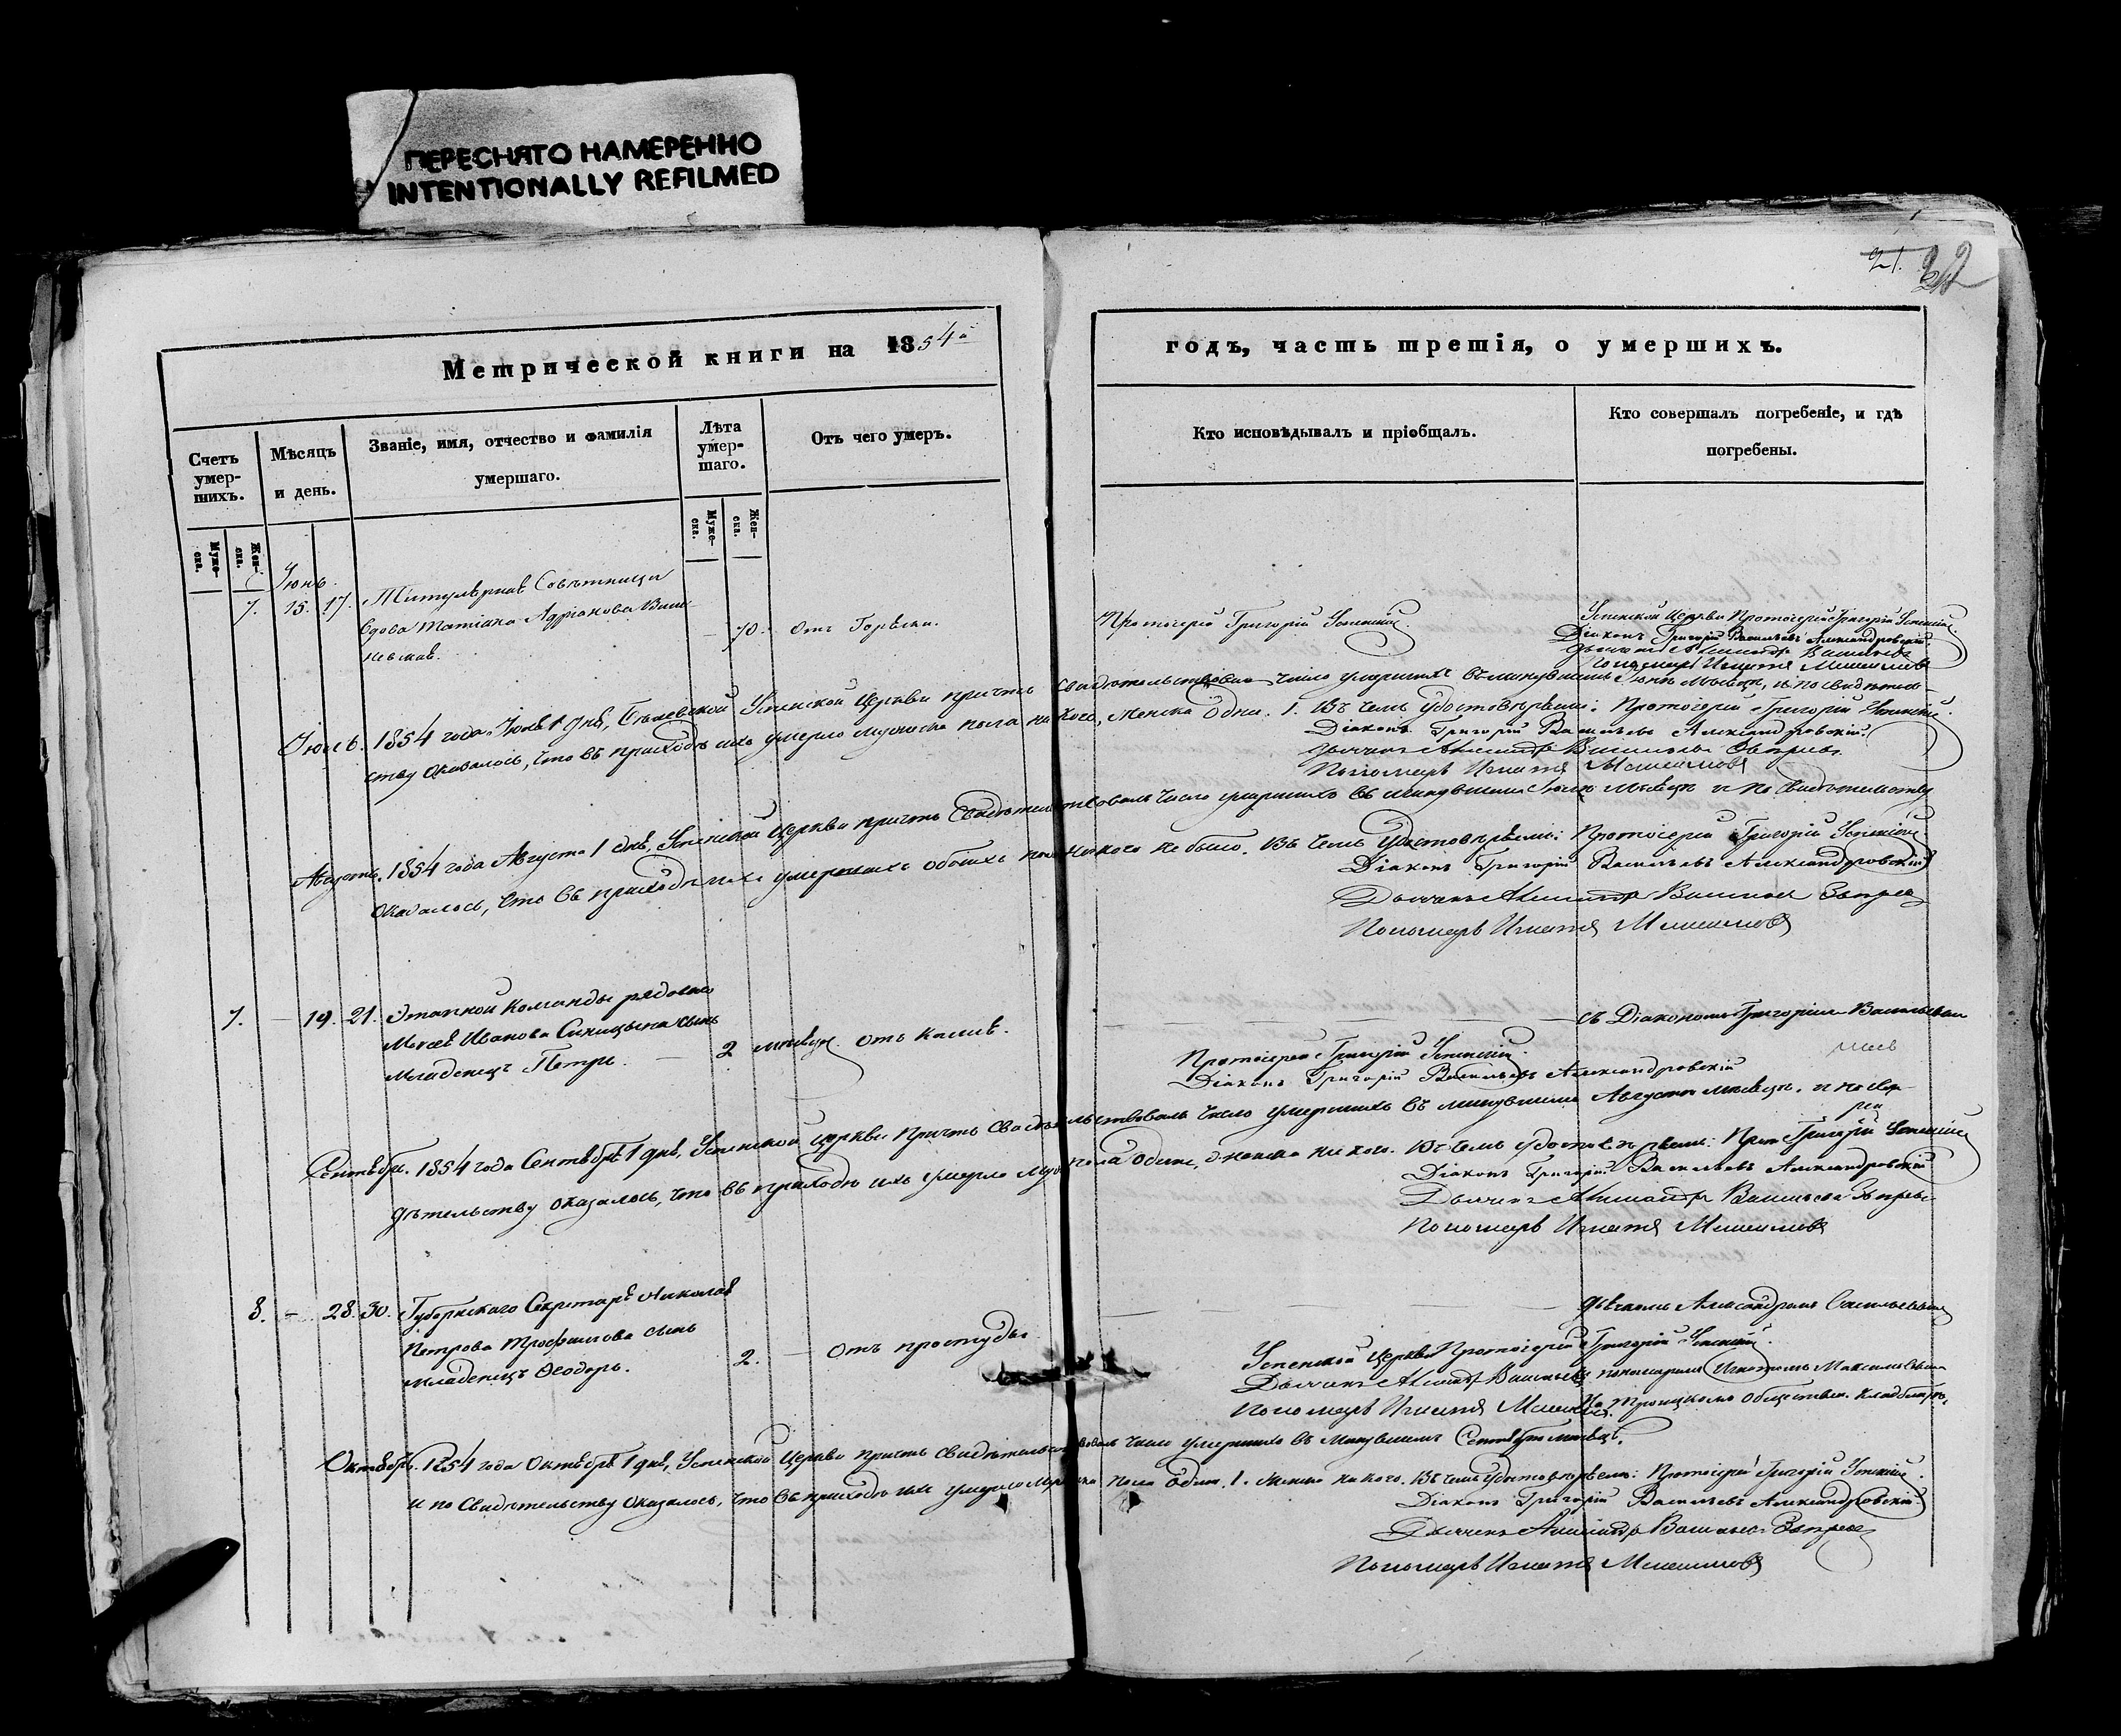 ПЕРЕСНЯТО НАМЕРЕННО
INTENTIONALLY REFILMED
21. 22
Метрической книги на 1854й
годъ, часть третія, о умершихъ.
Счетъ умер-шихъ.
Мѣсяцъ и день.
Званіе, имя, отчество и фамилія умершаго.
Лѣта умер-шаго.
Отъ чего умеръ.
Кто исповѣдывалъ и пріобщалъ.
Кто совершалъ погребеніе, и гдѣ погребены.
Муже-ска.
Жен-ска.
Муже-ска.
Жен-ска.
Іюнь.
7. 15. 17. Титулярная Совѣтница
вдова Татіана Адріанова
70. Отъ Горячки.
Протоіерей Григорій Успенскій.
Успенской Церкви Протоіерей Григорій Успенскій.
Діаконъ Григорій Васильевъ Александровскій.
Дьячекъ Александръ Васильевъ
Пономарь Игнатій Максимовъ
Іюль. 1854 года Іюля 1 дня, Бѣлевской Успенской Церкви причтъ свидѣтельствовалъ число умершихъ въ минувшемъ Іюнѣ мѣсяцѣ, и по свидѣтель-
ству оказалось, что въ приходѣ ихъ умерло мужеска пола никого, женска одна. 1. Въ чемъ удостовѣряемъ: Протоіерей Григорій Успенскій.
Діаконъ Григорій Васильевъ Александровскій.
Дьячекъ Александръ Васильевъ
Пономарь Игнатій Максимовъ
Августъ. 1854 года Августа 1 дня, Успенской Церкви причтъ свидѣтельствовалъ число умершихъ въ минувшемъ Іюлѣ мѣсяцѣ и по свидѣтельству
оказалось, что въ приходѣ ихъ умершихъ обоихъ пола никого не было. Въ чемъ удостовѣряемъ: Протоіерей Григорій Успенскій.
Діаконъ Григорій Васильевъ Александровскій
Дьячекъ Александръ Васильевъ
Пономарь Игнатій Максимовъ
7. — 19. 21. Этапной Команды рядоваго
Моѵсея Иванова Синицына сынъ
младенецъ Петръ. — 2 мѣсяц. Отъ кашля.
съ Діакономъ Григоріемъ Васильевым
Протоіерей Григорій Успенскій.
Діаконъ Григорій Васильевъ Александровскій
Сентябрь. 1854 года Сентября 1 дня, Успенской Церкви Причтъ свидѣтельствовалъ число умершихъ въ минувшемъ Августѣ мѣсяцѣ. и по сви-
дѣтельству оказалось, что въ приходѣ ихъ умерло муж. пола одинъ, женска никого. Въ чемъ удостовѣряемъ: Прот. Григорій Успенскій
Діаконъ Григорій Васильевъ Александровскій
Дьячекъ Александръ Васильевъ
Пономарь Игнатій Максимовъ
8. — 28. 30. Губернскаго Секретаря Николая
Петрова Трофимова сынъ
младенецъ Ѳеодоръ. 2. — Отъ простуды.
дьячкомъ Александромъ Васильевымъ
Успенской Церкви Протоіерей Григорій Успенскій.
Дьячекъ Александръ Васильевъ
пономаремъ Игнатіемъ Максимовымъ
Пономарь Игнатій Максимовъ.
На Троицкомъ общественн. кладбищѣ.
Октябрь. 1854 года Октября 1 дня, Успенской Церкви причтъ свидѣтельствовалъ число умершихъ въ минувшемъ Сентябрѣ мѣсяцѣ.
и по свидѣтельству оказалось, что въ приходѣ ихъ умерло мужеска пола одинъ. 1. женска никого. Въ чемъ удостовѣряемъ: Протоіерей Григорій Успенскій.
Діаконъ Григорій Васильевъ Александровскій
Дьячекъ Александръ Васильевъ
Пономарь Игнатій Максимовъ